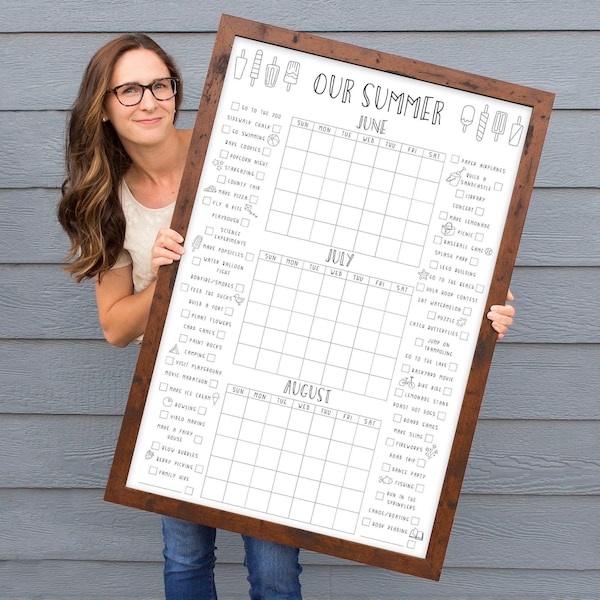 OUR SUMMER
JUNE
SUN MON TUE WED THU FRI SAT
JULY
SUN MON TUE WED THU FRI SAT
AUGUST
SUN MON TUE WED THU FRI SAT
GO TO THE ZOO
SIDEWALK CHALK
GO SWIMMING
BAKE COOKIES
POPCORN NIGHT
STARGAZING
COUNTY FAIR
MAKE PIZZA
FLY A KITE
PLAYDOUGH
SCIENCE
EXPERIMENTS
MAKE POPSICLES
WATER BALLOON
FIGHT
BONFIRE/SMORES
FEED THE DUCKS
BUILD A FORT
PLANT FLOWERS
CARD GAMES
PAINT ROCKS
CAMPING
VISIT PLAYGROUND
MOVIE MARATHON
MAKE ICE CREAM
BOWLING
VIDEO MAKING
MAKE A FAIRY
HOUSE
BLOW BUBBLES
BERRY PICKING
FAMILY HIKE
PAPER AIRPLANES
BUILD A
SANDCASTLE
LIBRARY
CONCERT
MAKE LEMONADE
PICNIC
BASEBALL GAME
SPLASH PARK
LEGO BUILDING
GO TO THE BEACH
HULA HOOP CONTEST
EAT WATERMELON
PUZZLE
CATCH BUTTERFLIES
JUMP ON
TRAMPOLINE
GO TO THE LAKE
BACKYARD MOVIE
BIKE RIDE
LEMONADE STAND
ROAST HOT DOGS
BOARD GAMES
MAKE SLIME
FIREWORKS
ROAD TRIP
DANCE PARTY
FISHING
RUN IN THE
SPRINKLERS
CANOE/BOATING
BOOK READING